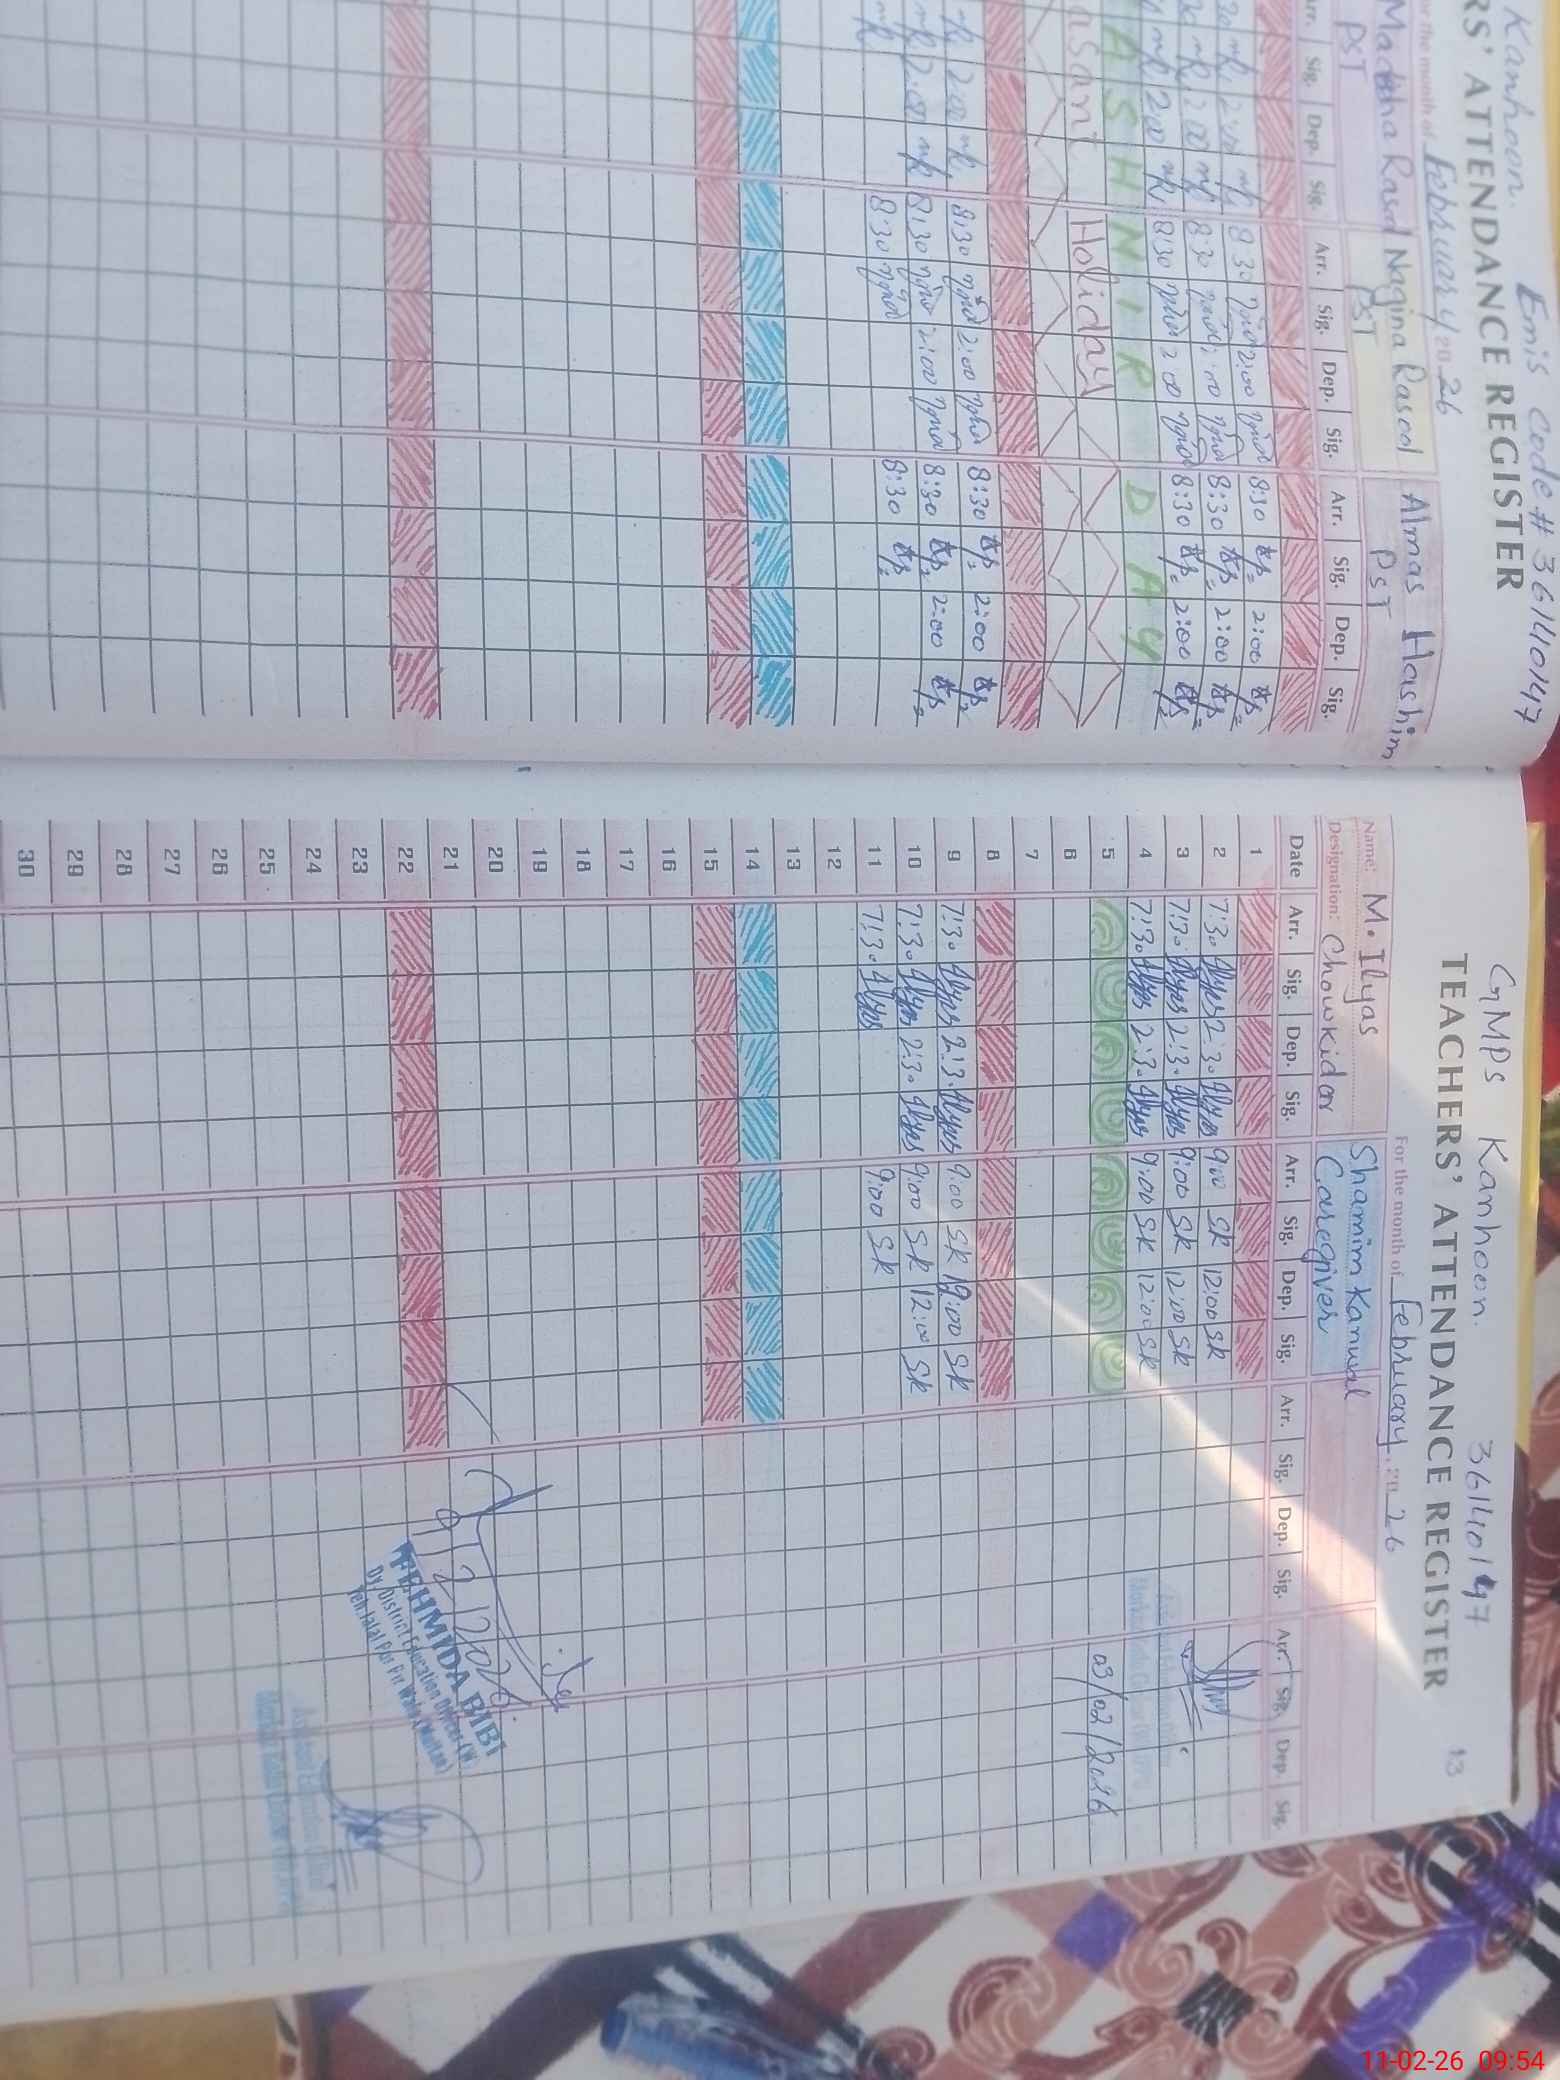 Kanhoon. Emis Code # 36140147
RS' ATTENDANCE REGISTER
or the month of February 20 26
Rasool Nagina Rasool Almas Hashim
PST PST PST
Arr. Sig. Dep. Sig. Arr. Sig. Dep. Sig. Arr. Sig. Dep. Sig.
2:00 8:30 2:00 8:30 2:00
2:00 8:30 8:30 2:00
2:00 8:30 2:00 8:30 2:00
ASHMIR DAY
asant Holiday
2:00 8:30 2:00 8:30 2:00
2:00 8:30 2:00 8:30 2:00
8:30 8:30
GMPS Kanhoon. 36140147 13
TEACHERS' ATTENDANCE REGISTER
For the month of February, 20 26
Name: M. Ilyas Shamim Kanwal
Designation: Chowkidar Caregiver
Date Arr. Sig. Dep. Sig. Arr. Sig. Dep. Sig. Arr. Sig. Dep. Sig. Arr. Sig. Dep. Sig.
1
2 7:30 Ilyas 2:30 Ilyas 9:00 SK 12:00 SK
3 7:30 Ilyas 2:30 Ilyas 9:00 SK 12:00 SK
4 7:30 Ilyas 2:30 Ilyas 9:00 SK 12:00 SK
5 03/02/2026
6
7
8
9 7:30 Ilyas 2:30 Ilyas 9:00 SK 12:00 SK
10 7:30 Ilyas 2:30 Ilyas 9:00 SK 12:00 SK
11 7:30 Ilyas 9:00 SK
12
13
14
15
16
17
18
19
20
21
22
23
24
25
26
27
28
29
30
FEHMIDA BIBI
Dy. District Education Officer (W)
Teh. Jalal Pur Pir Wala (Multan)
11-02-26 09:54